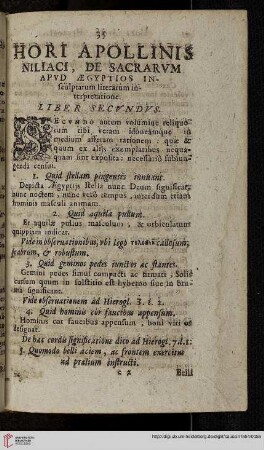 35
HORI APOLLINIS
NILIACI, DE SACRARVM
APVD ÆGYPTIOS IN-
sculptarum literarum in-
terpretatione
LIBER SECVNDVS.
SECVNDO autem volumine reliquo-
rum tibi veram idoneamque
afferam rationem: quæ &
quum ex aliis exemplaribus nequa-
quam sint exposita: necessariò subiun-
genda censui.
1. Quid stellam pingentes innuant.
Depicta Ægyptiis stella nunc Deum significat,
nunc noctem, nunc verò tempus, interdum etiam
hominis masculi animam.
2. Quid aquilæ pullum.
Et aquilæ pullus masculum, & orbiculatum
quippiam indicat.
Vide in observationibus, ubi lego callosum,
& robustum.
3. Quid geminos pedes iunctos ac stantes.
Gemini pedes simul compacti ac firmati, Solis
cursum quum in solstitio est hyberno sive in bru-
ma significant.
Vide observationem ad Hierogl. 3. l. 2.
4. Quid hominis cor faucibus appensum.
Hominis cor faucibus appensum, boni viri os
designat.
De hac cordis significatione dico ad Hierogl. 7. l. 1.
5. Quomodo belli aciem, ac frontem exercitus
ad prælium instructi.
c 2
Belli